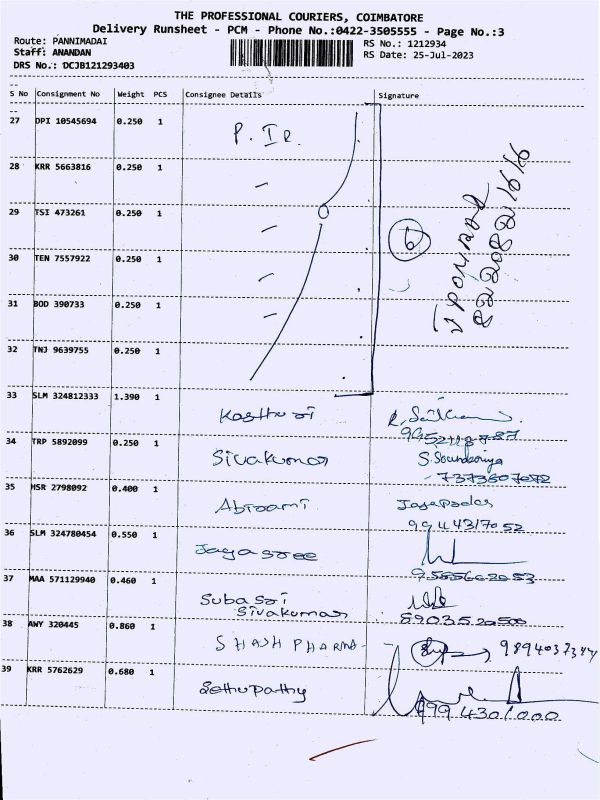 THE PROFESSIONAL COURIERS, COIMBATORE
Delivery Runsheet - PCM - Phone No.:0422-3505555 - Page No.:3
Route: PANNIMADAI
RS No.: 1212934
Staff: ANANDAN
RS Date: 25-Jul-2023
DRS No.: DCJB121293403
S No Consignment No Weight PCS Consignee Details Signature
27 DPI 10545694 0.250 1 P. IR.
28 KRR 5663816 0.250 1
29 TSI 473261 0.250 1
30 TEN 7557922 0.250 1
31 BOD 390733 0.250 1
32 TNJ 9639755 0.250 1
6
33 SLM 324812333 1.390 1 Kasthuri
34 TRP 5892099 0.250 1 Sivakumar S. Soundariya
7373607072
35 HSR 2798092 0.400 1 Abirami
9944317052
36 SLM 324780454 0.550 1 Jayasree
37 MAA 571129940 0.460 1 Suba Sri
Sivakumar
8903520500
38 AWY 320445 0.860 1 SHASH PHARMA
39 KRR 5762629 0.680 1 Sethupathy
9994301000